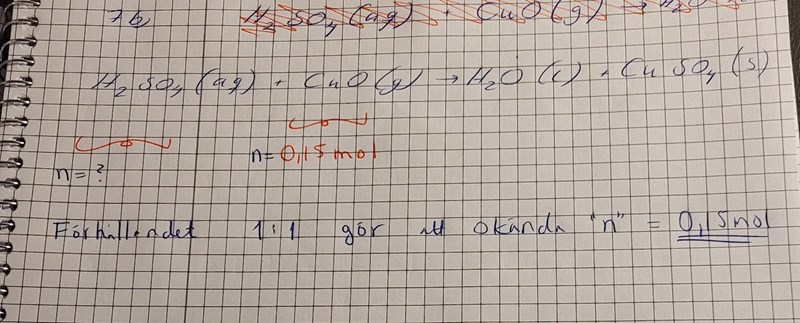 7b H₂SO₄(aq) + CuO(g) → H₂O
H₂SO₄(aq) + CuO(g) → H₂O(l) + CuSO₄(s)
n=? n=0,15 mol
Förhållandet 1:1 gör att okända "n" = 0,15mol